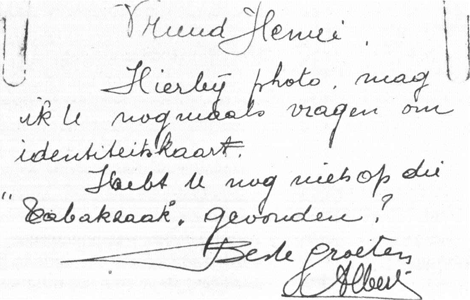 Vriend Henri.
Hierbij photo, mag
ik U nogmaals vragen om
identiteitskaart.
Hebt U nog niets op die
"Tabakzaak". gevonden?
Beste groeten
Albert